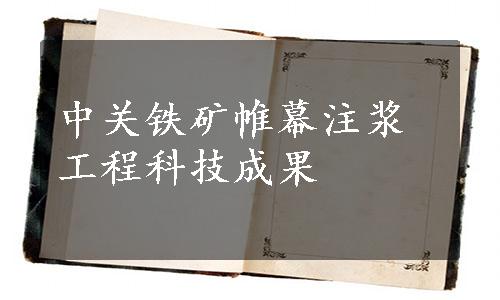 中关铁矿帷幕注浆
工程科技成果